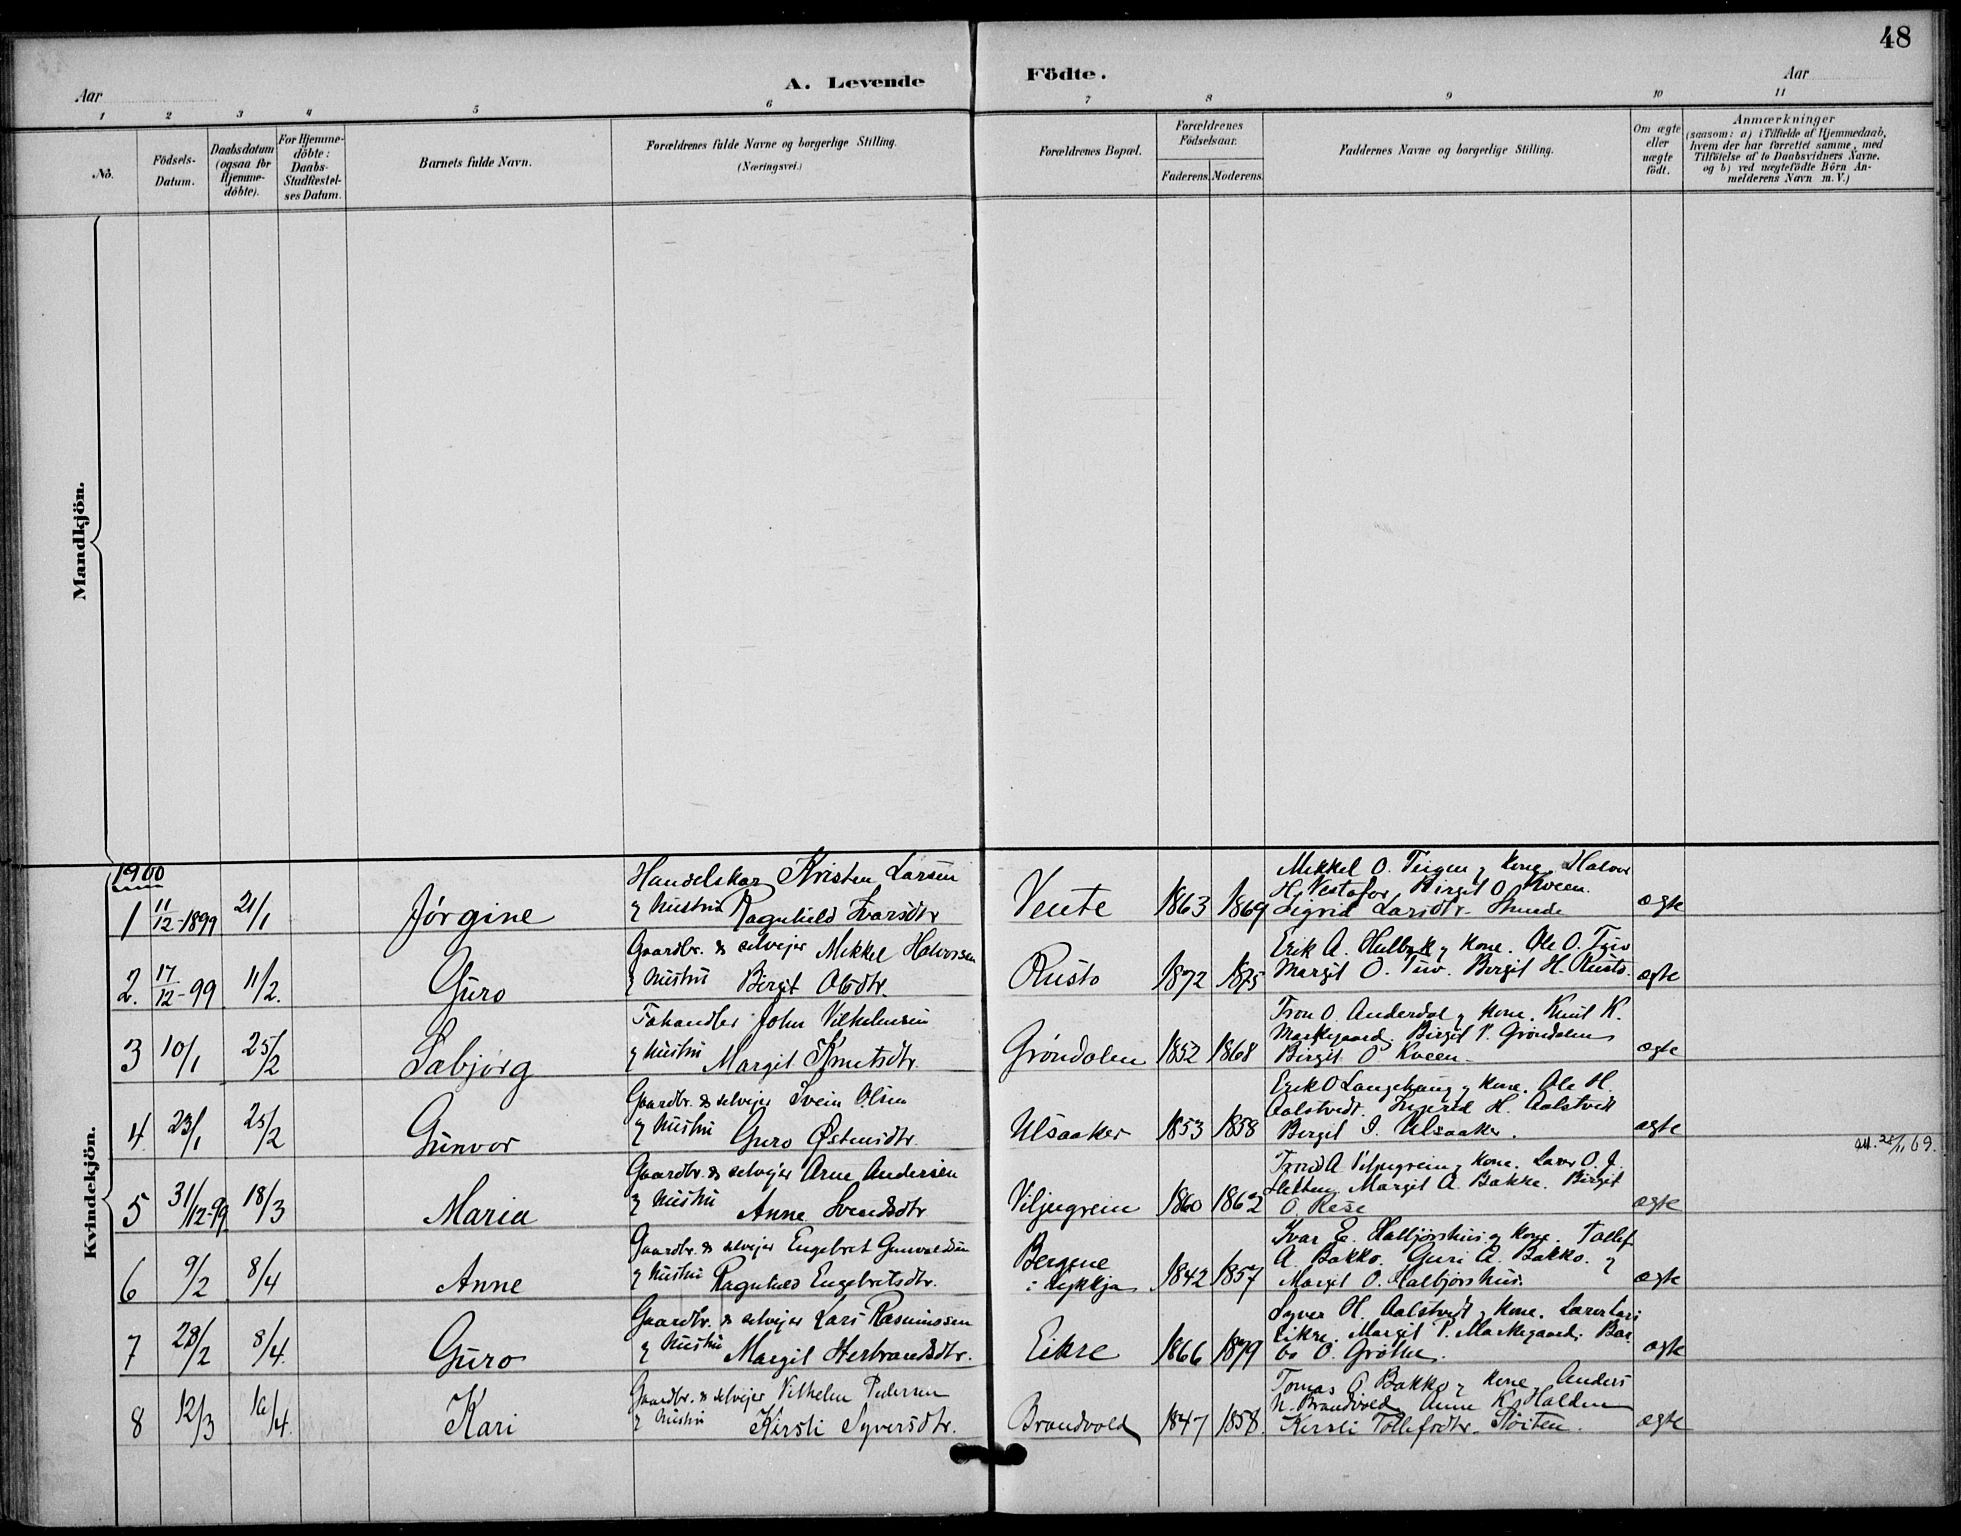 48
A. Levende Födte.
Aar
Aar
1 2 3 4 5 6 7 8 9 10 11
No.
Födsels-Datum.
Daabsdatum (ogsaa for Hjemme-döbte).
For Hjemme-döbte: Daabs-Stadfæstel-ses Datum.
Barnets fulde Navn.
Forældrenes fulde Navne og borgerlige Stilling.
(Næringsvei.)
Forældrenes Bopæl.
Forældrenes Födselsaar.
Faderens. Moderens.
Faddernes Navne og borgerlige Stilling.
Om ægte eller uægte födt.
Anmærkninger
(saasom: a) i Tilfælde af Hjemmedaab,
hvem der har forrettet samme, med
Tilföielse af to Daabsvidners Navne.
og b) ved uægtefödte Börn An-
melderens Navn m. V.)
Mandkjön.
Kvindekjön.
1900
1 11/12-1899 21/1 Jørgine
Handelskar Kristen Larsen
& Hustru Ragnhild Ivarsdtr
Vente 1863 1869
Mikkel O. Teigen & Kone. Halvor
H. Vestafor Birgit O. Kveen
Sigrid Larsdtr.
ægte
2. 17/12-99 11/2. Guro
Gaardbr. & selvejer Mekkel Halvorsen
& Hustru Birgit Olsdtr.
Rusto 1872 1875
Erik A. Hulbak & Kone. Ole O. Tuv
Margit O. Tuv. Bergit H. Rusto.
ægte
3 10/1 25/2 Sabjørg
Fahandler John Vilhelmsen
& Hustru Margit Knutsdtr.
Grøndalen 1852 1868
Tron O. Anderdal & Kone. Knut K.
Markegaard. Birgit P. Grøndalen
Birgit O Kveen
ægte
4. 23/1 25/2 Gunvor
Gaardbr. & selvejer Svein Olsen
& Hustru Guro Østensdtr.
Ulsaaker 1853 1858
Erik O Langehaug & Kone. Ole H.
Aalstvedt. Ingrid H. Aalstvedt
Bergit I. Ulsaaker.
ægte
28/11 69.
5 31/12-99 18/3 Maria
Gaardbr. & selvejer Arne Andersen
& Hustru Anne Svendsdtr
Viljugrein 1860 1862
Trond A. Viljugrein & Kone. Larer O. J.
Margit A. Bakke. Birgit
O. Rese
ægte
6 9/2 8/4 Anne
Gaardbr. & selvejer Engebret Gunvaldsen
& Hustru Ragnhild Engebretsdtr.
Bergene
i Lykkja 1842 1857
Ivar E. Halbjørshus & Kone. Tollef
A. Bakko. Guri A. Bakko. &
Margit O. Halbjørshus.
ægte
7 28/2 8/4. Guro
Gaardbr. & selvejer Lars Rasmussen
& Hustru Margit Herbrandsdtr.
Eikre 1866 1879
Syver H. Aalstvedt & Kone. Larer Lars
Eikre. Margit P. Markegaard. Bar-
bo O. Grøthe.
ægte
8 12/3 16/4. Kari
Gaardbr. & selvejer Vilhelm Pedersen
& Hustru Kirsti Syversdtr.
Brandvold 1847 1858.
Tomas O Bakko & Kone Anders
N. Brandvold Anne K. Halden
Kirsti Tollefsdtr. Støiten.
ægte